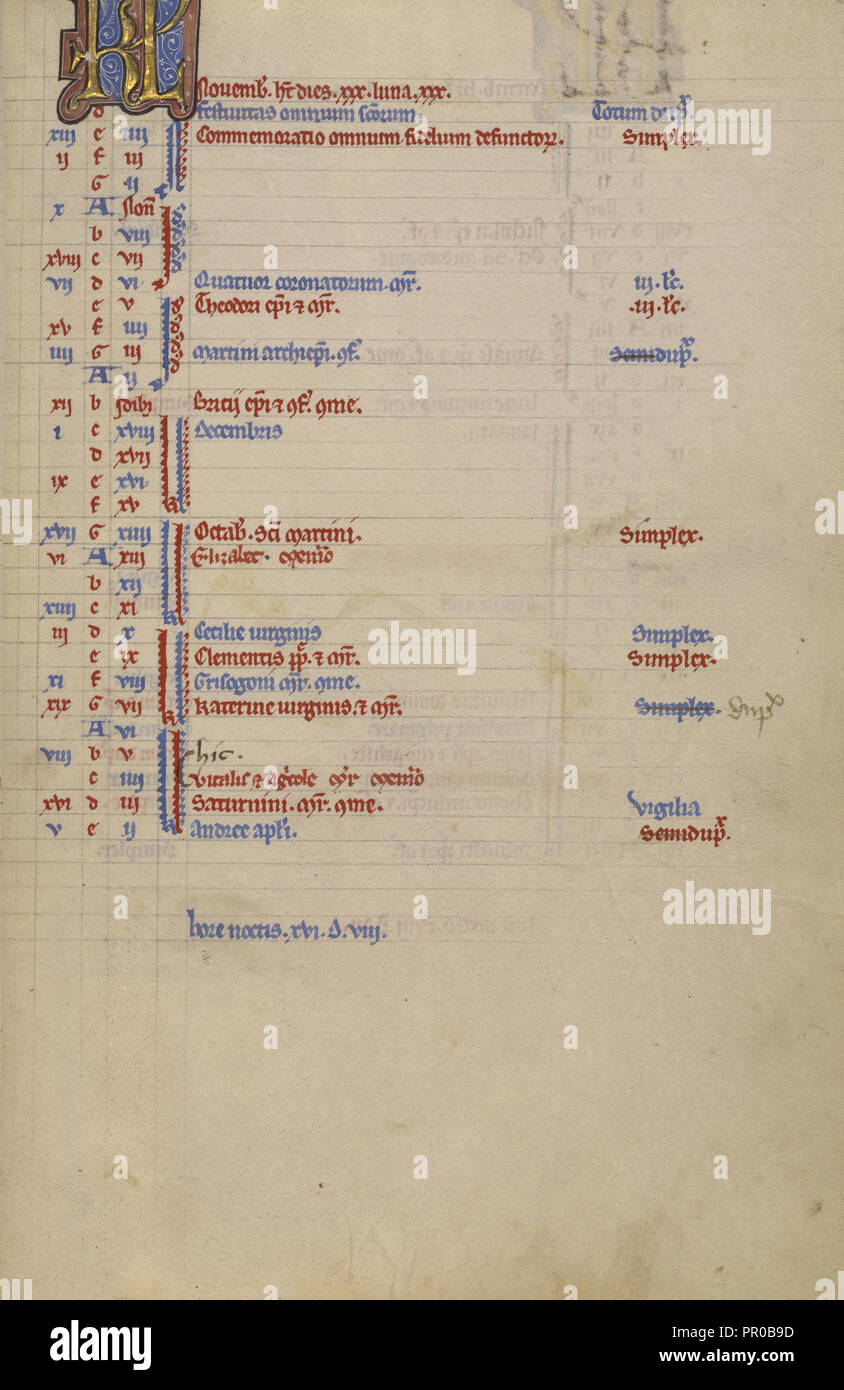 KL
Novemb. ht dies. xxx. luna. xxx.
d festivitas omnium sctorum. Totum dupx.
xiii e iiii Commemoratio omnium fidelium defunctor. Simplex.
ii f iii
G ii
x A Non
b viii
xviii c vii
vii d vi Quatuor coronatorum. mr. iii. lc.
e v Theodori epi z mr. .iii. lc.
xv f iiii
iiii G iii Martini archiepi. 9f. Semidupx.
A ii
xii b Idibz Bricii epi z 9f. 9me.
i c xviii Decembris
d xvii
ix e xvi
f xv
xvii G xiiii Octab. Sci Martini. Simplex.
vi A xiii Elizabet. memo
b xii
xiiii c xi
iii d x Cecilie virginis Simplex.
e ix Clementis pp. z mr. Simplex.
xi f viii Grisogoni mr. 9me.
xix G vii Katerine virginis. z mr. Simplex. dupx
A vi
viii b v hic.
c iiii Vitalis z Agricole mr memo
xvi d iii Saturnini. mr. 9me. Vigilia
v e ii Andree apli. Semidupx.
hore noctis. xvi. D. viii.
a alamy
alamy
Image ID: PR0B9D
www.alamy.com